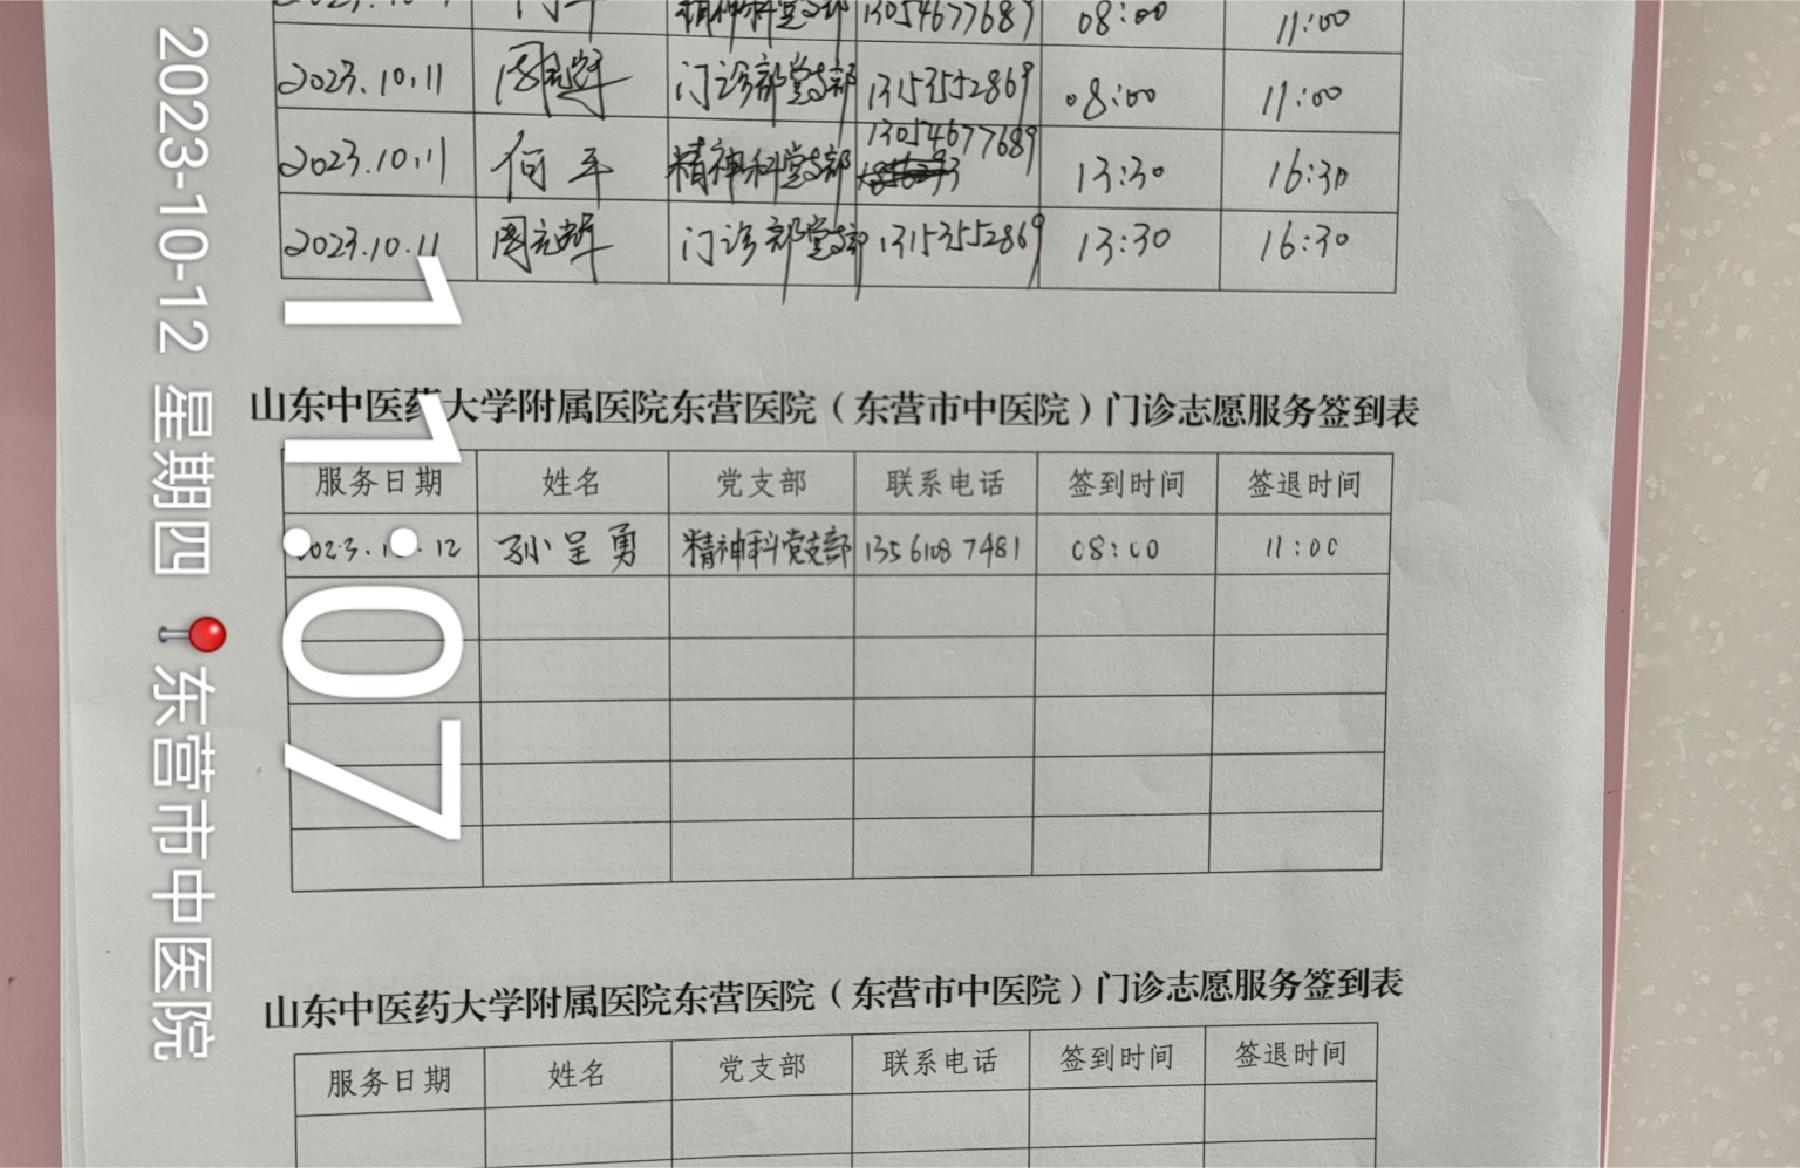 精神科党支部 13054677689 08:00 11:00
2023.10.11 门诊部党支部 13153552869 08:00 11:00
2023.10.11 何平 精神科党支部 13054677689 13:30 16:30
2023.10.11 门诊部党支部 13153552869 13:30 16:30
山东中医药大学附属医院东营医院（东营市中医院）门诊志愿服务签到表
服务日期 姓名 党支部 联系电话 签到时间 签退时间
2023.10.12 孙呈勇 精神科党支部 13561087481 08:00 11:00
山东中医药大学附属医院东营医院（东营市中医院）门诊志愿服务签到表
服务日期 姓名 党支部 联系电话 签到时间 签退时间
11:07
2023-10-12 星期四 📍东营市中医院